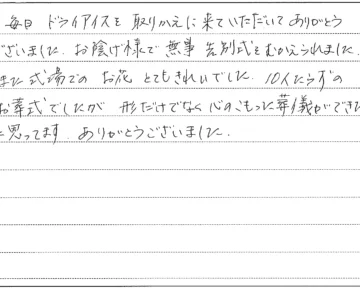 毎日 ドライアイスを 取りかえに来ていただいて ありがとう
ございました。お陰げ様で 無事 告別式をむかえられました。
また式場での お花 とてもきれいでした。10人たらずの
お葬式でしたが 形だけでなく 心のこもった葬儀ができた
と思ってます。ありがとうございました。